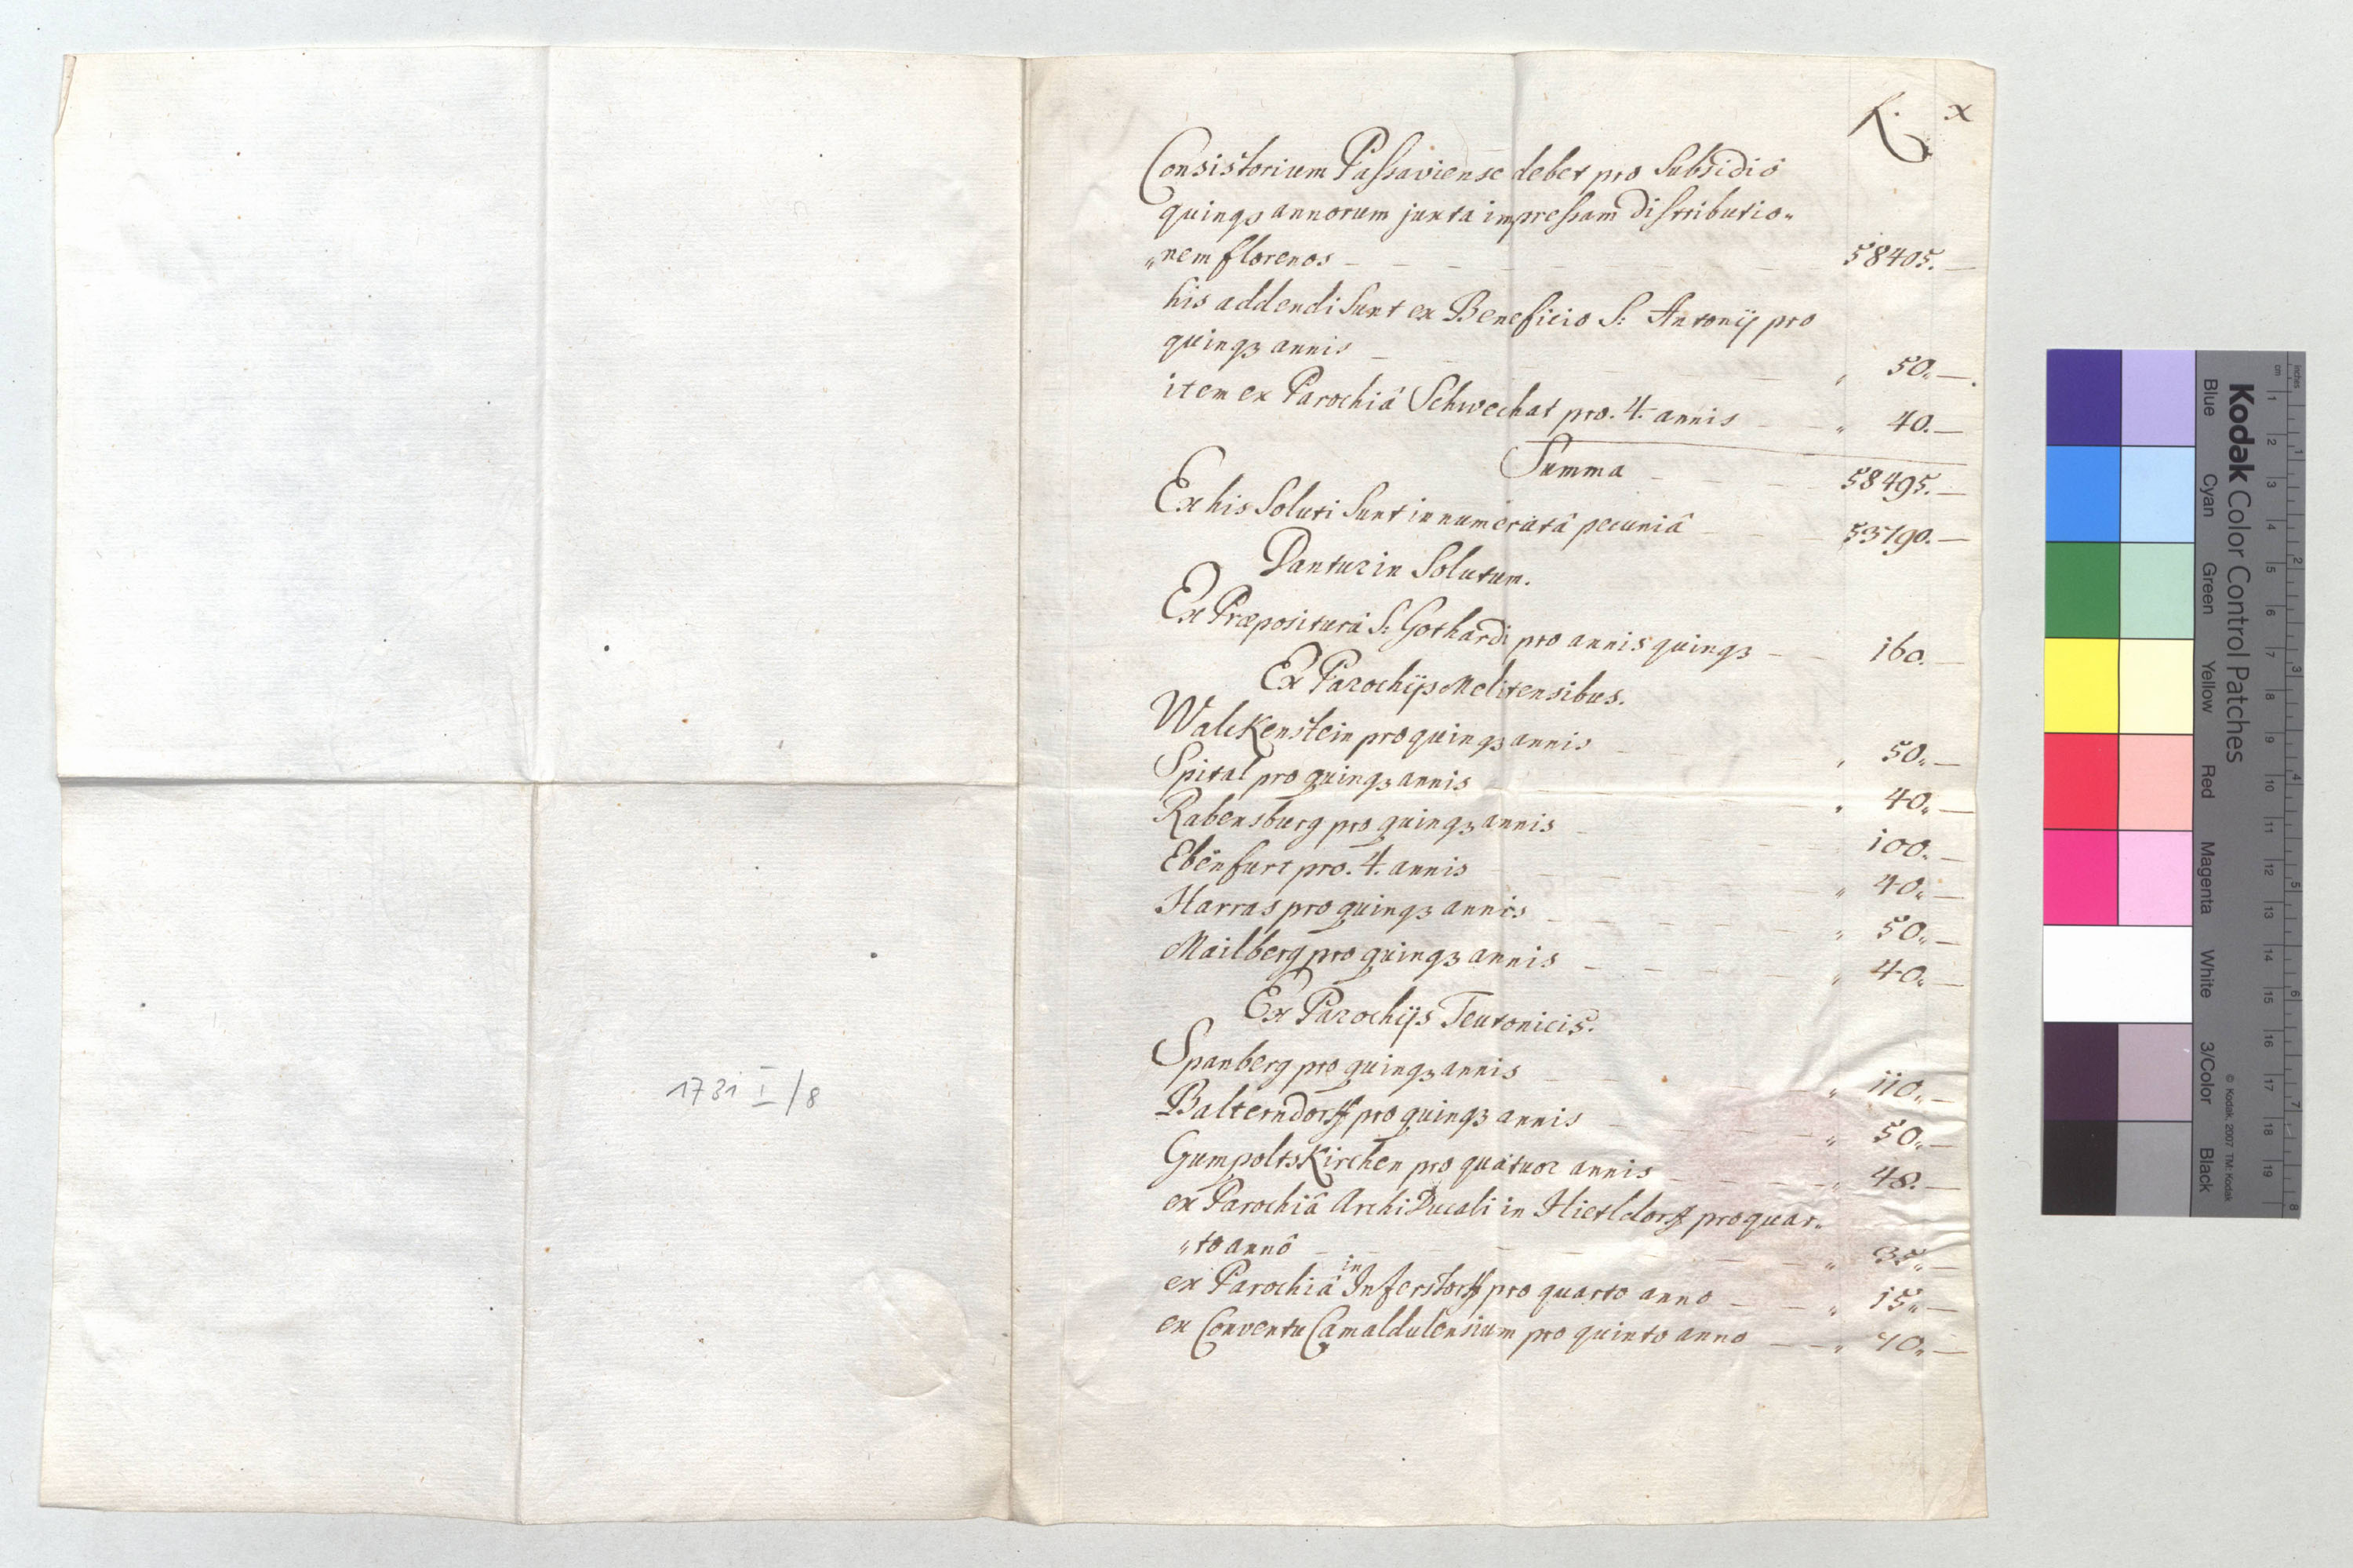 1731 I/8
f. x
Consistorium Passaviense debet pro Subsidio
quinqz annorum juxta impressam distributio„
„nem florenos – – – – 58405.–
his addendi sunt ex Beneficio S: Antonij pro
quinqz annis – – – „ 50.–
item ex Parochiâ Schwechat pro. 4. annis – – „ 40.–
Summa – – – 58495.–
Ex his Soluti Sunt in numeratâ pecuniâ – – – 53790.–
Dantur in Solutum.
Ex Præpositurâ S: Gothardi pro annis quinqz – – 160.–
Ex Parochijs Melitensibus.
Walckenstein pro quinqz annis – – – „ 50.–
Spital pro quinqz annis – – – „ 40.–
Rabensburg pro quinqz annis – – – 100.–
Ebenfurt pro. 4. annis – – – „ 40.–
Harras pro quinqz annis – – – „ 50.–
Mailberg pro quinqz annis – – – „ 40.–
Ex Parochijs Teutonicis.
Spanberg pro quinqz annis – – – „ 110.–
Palterndorff pro quinqz annis – – – „ 50.–
Gumpoltskirchen pro quatuor annis – – – „ 48.–
ex Parochiâ ArchiDucali in Hietldorff pro quar„
„to annô – – – „ 35.–
ex Parochiâ in Inferstorff pro quarto anno – – „ 15.–
ex Conventu Camaldulensium pro quinto anno – – „ 40.–
Kodak Color Control Patches
Blue Cyan Green Yellow Red Magenta White 3/Color Black
© Kodak, 2007 TM: Kodak
inches 1 2 3 4 5 6 7 8
cm 1 2 3 4 5 6 7 8 9 10 11 12 13 14 15 16 17 18 19